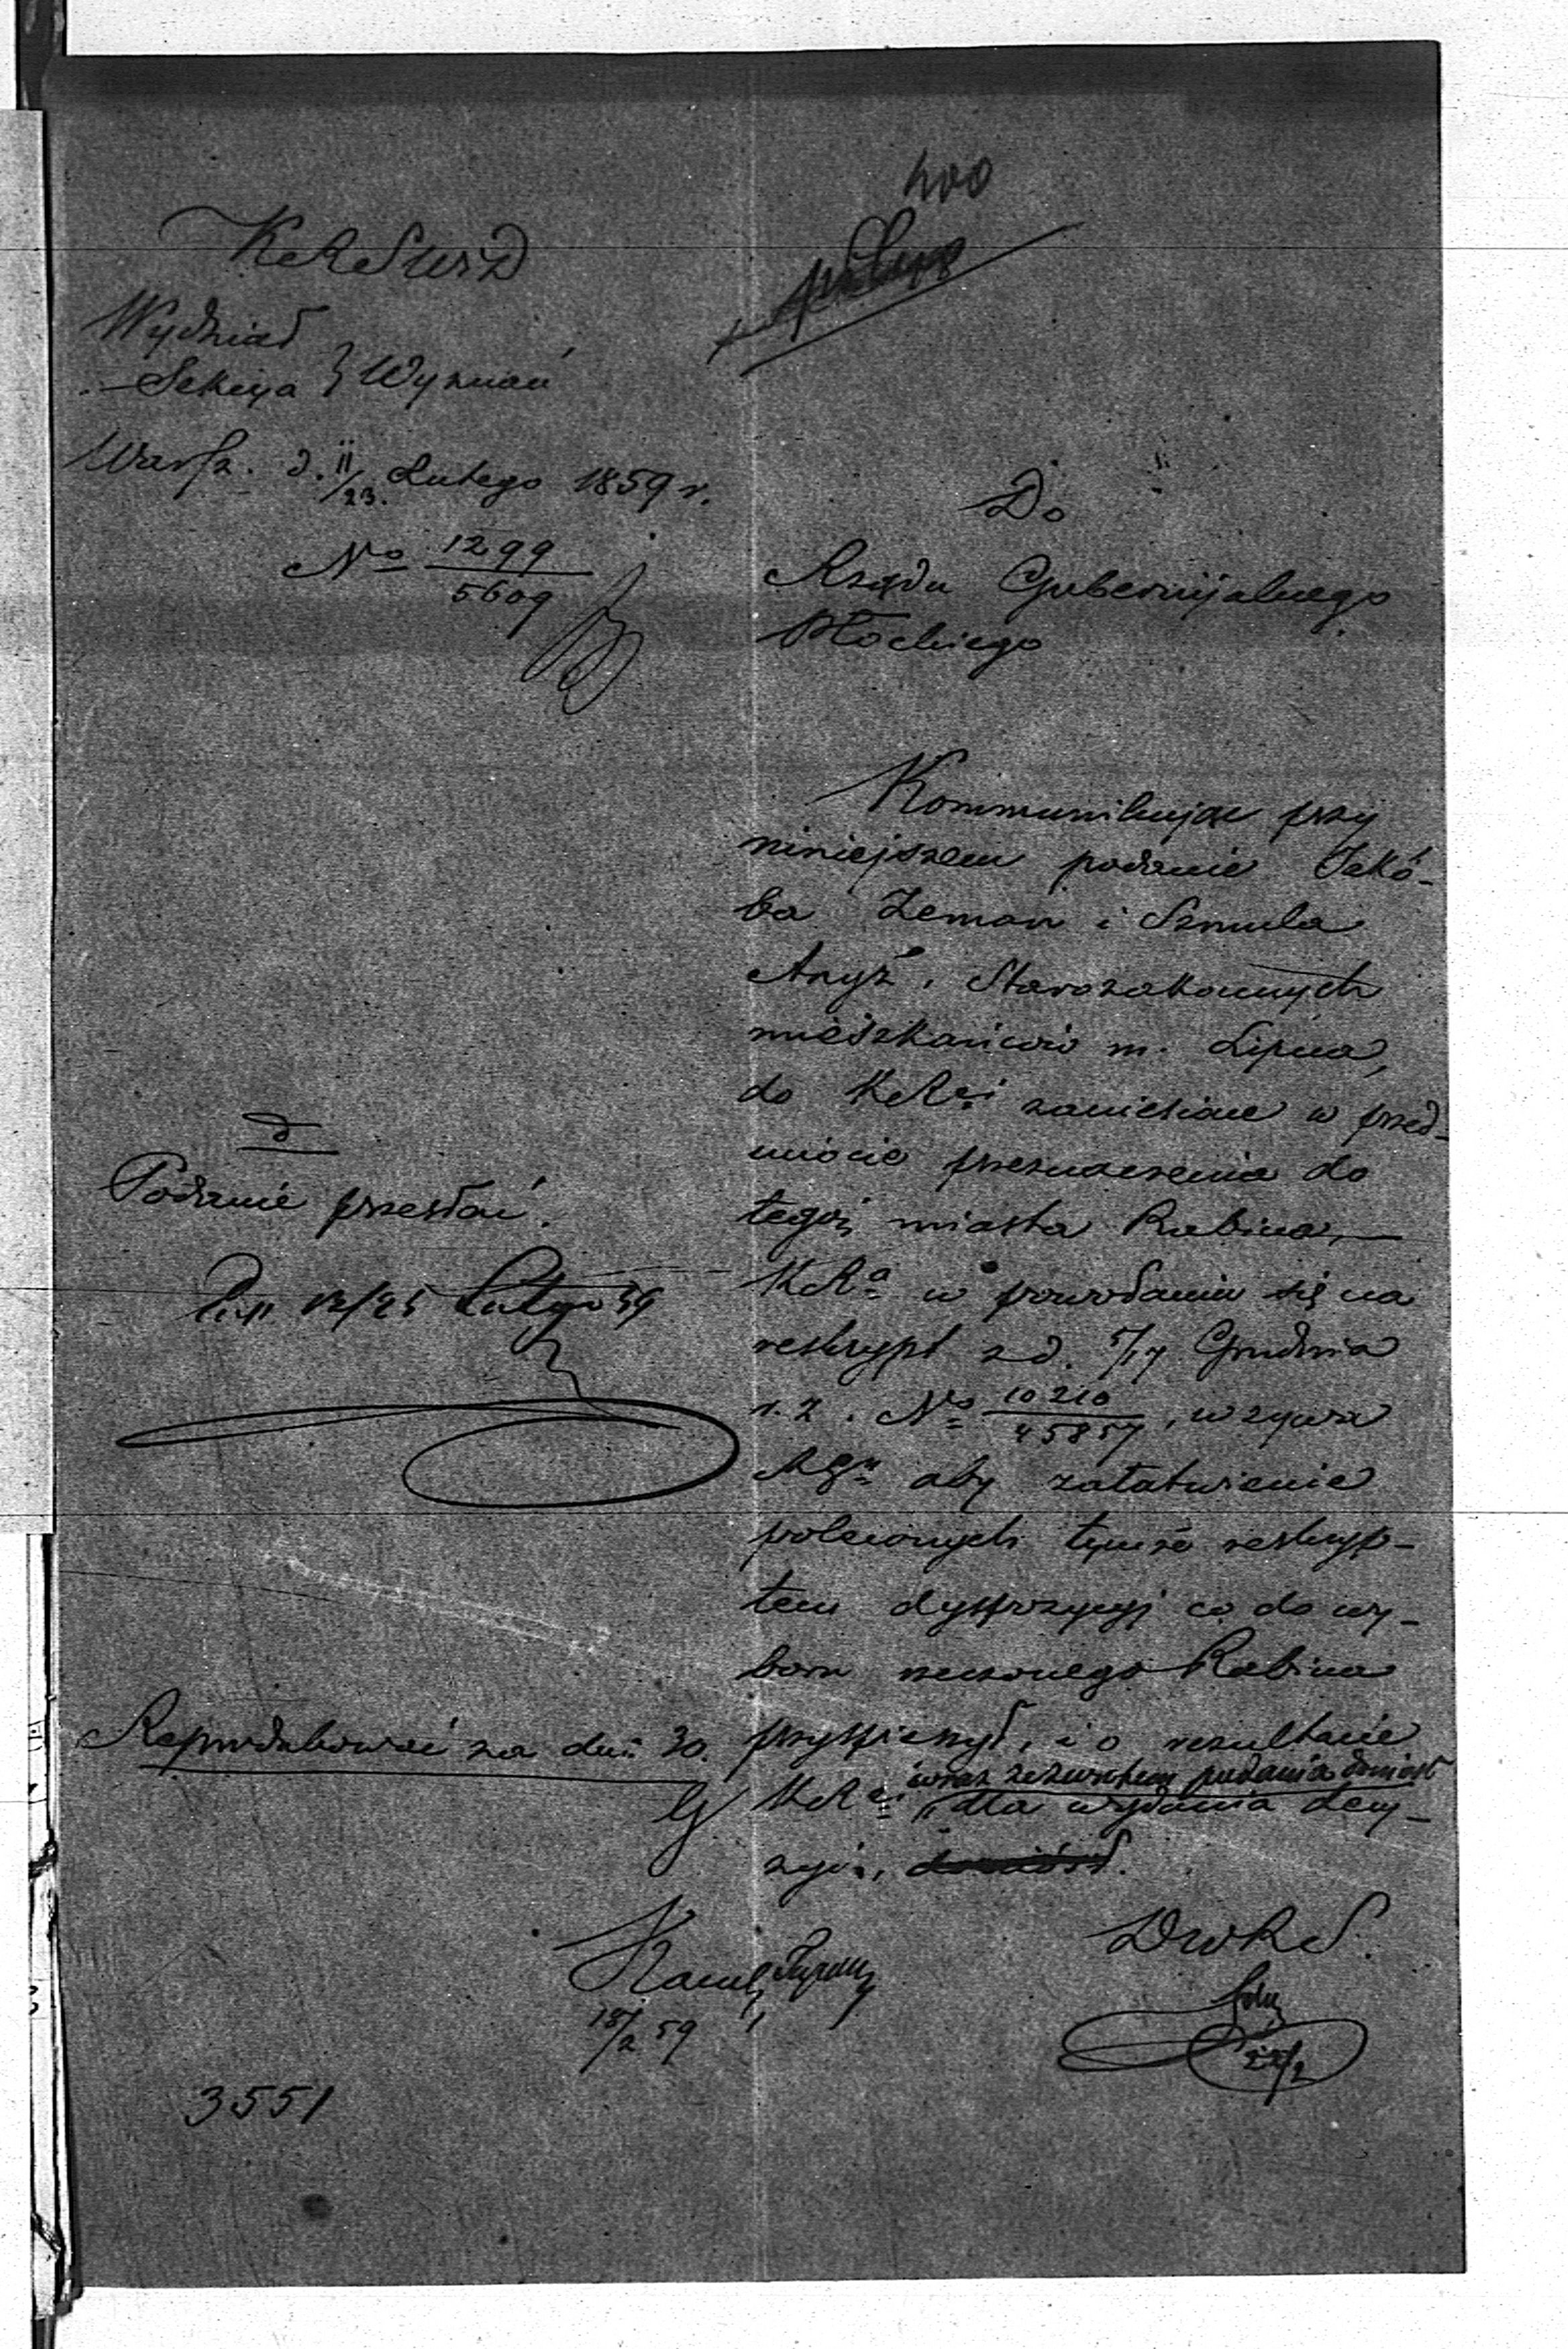 400
KRSWiD
Wydział
Sekcya } Wyznań
Warsz. d. 11/23. Lutego 1859 r.
No 1299/5609
Do
Rządu Gubernijalnego
Płockiego
Kommunikując przy
niniejszem podanie Jakó-
ba Zeman i Szmula
Aryż, Starozakonnych
mieszkańców m. Lipna,
do KRSi zaniesione w przed-
miocie przeznaczenia do
tegoż miasta Rabina,—
KRa w powołaniu się na
reskrypt z d. 5/17 Grudnia
r. z. No 10210/45857, wzywa
RGu aby załatwienie
poleconych tymże reskryp-
tem dyspozycyj co do wy-
boru rzeczonego Rabina
przyspieszył, i o rezultacie
KRi wraz ze zwrotem podania doniósł
dla wydania decy-
zyi, doniósł.
d
Podanie przesłać.
12/24 Lutego 59
Reprodukować za dni 30.
DWRS.
18/2 59
22/2
3551